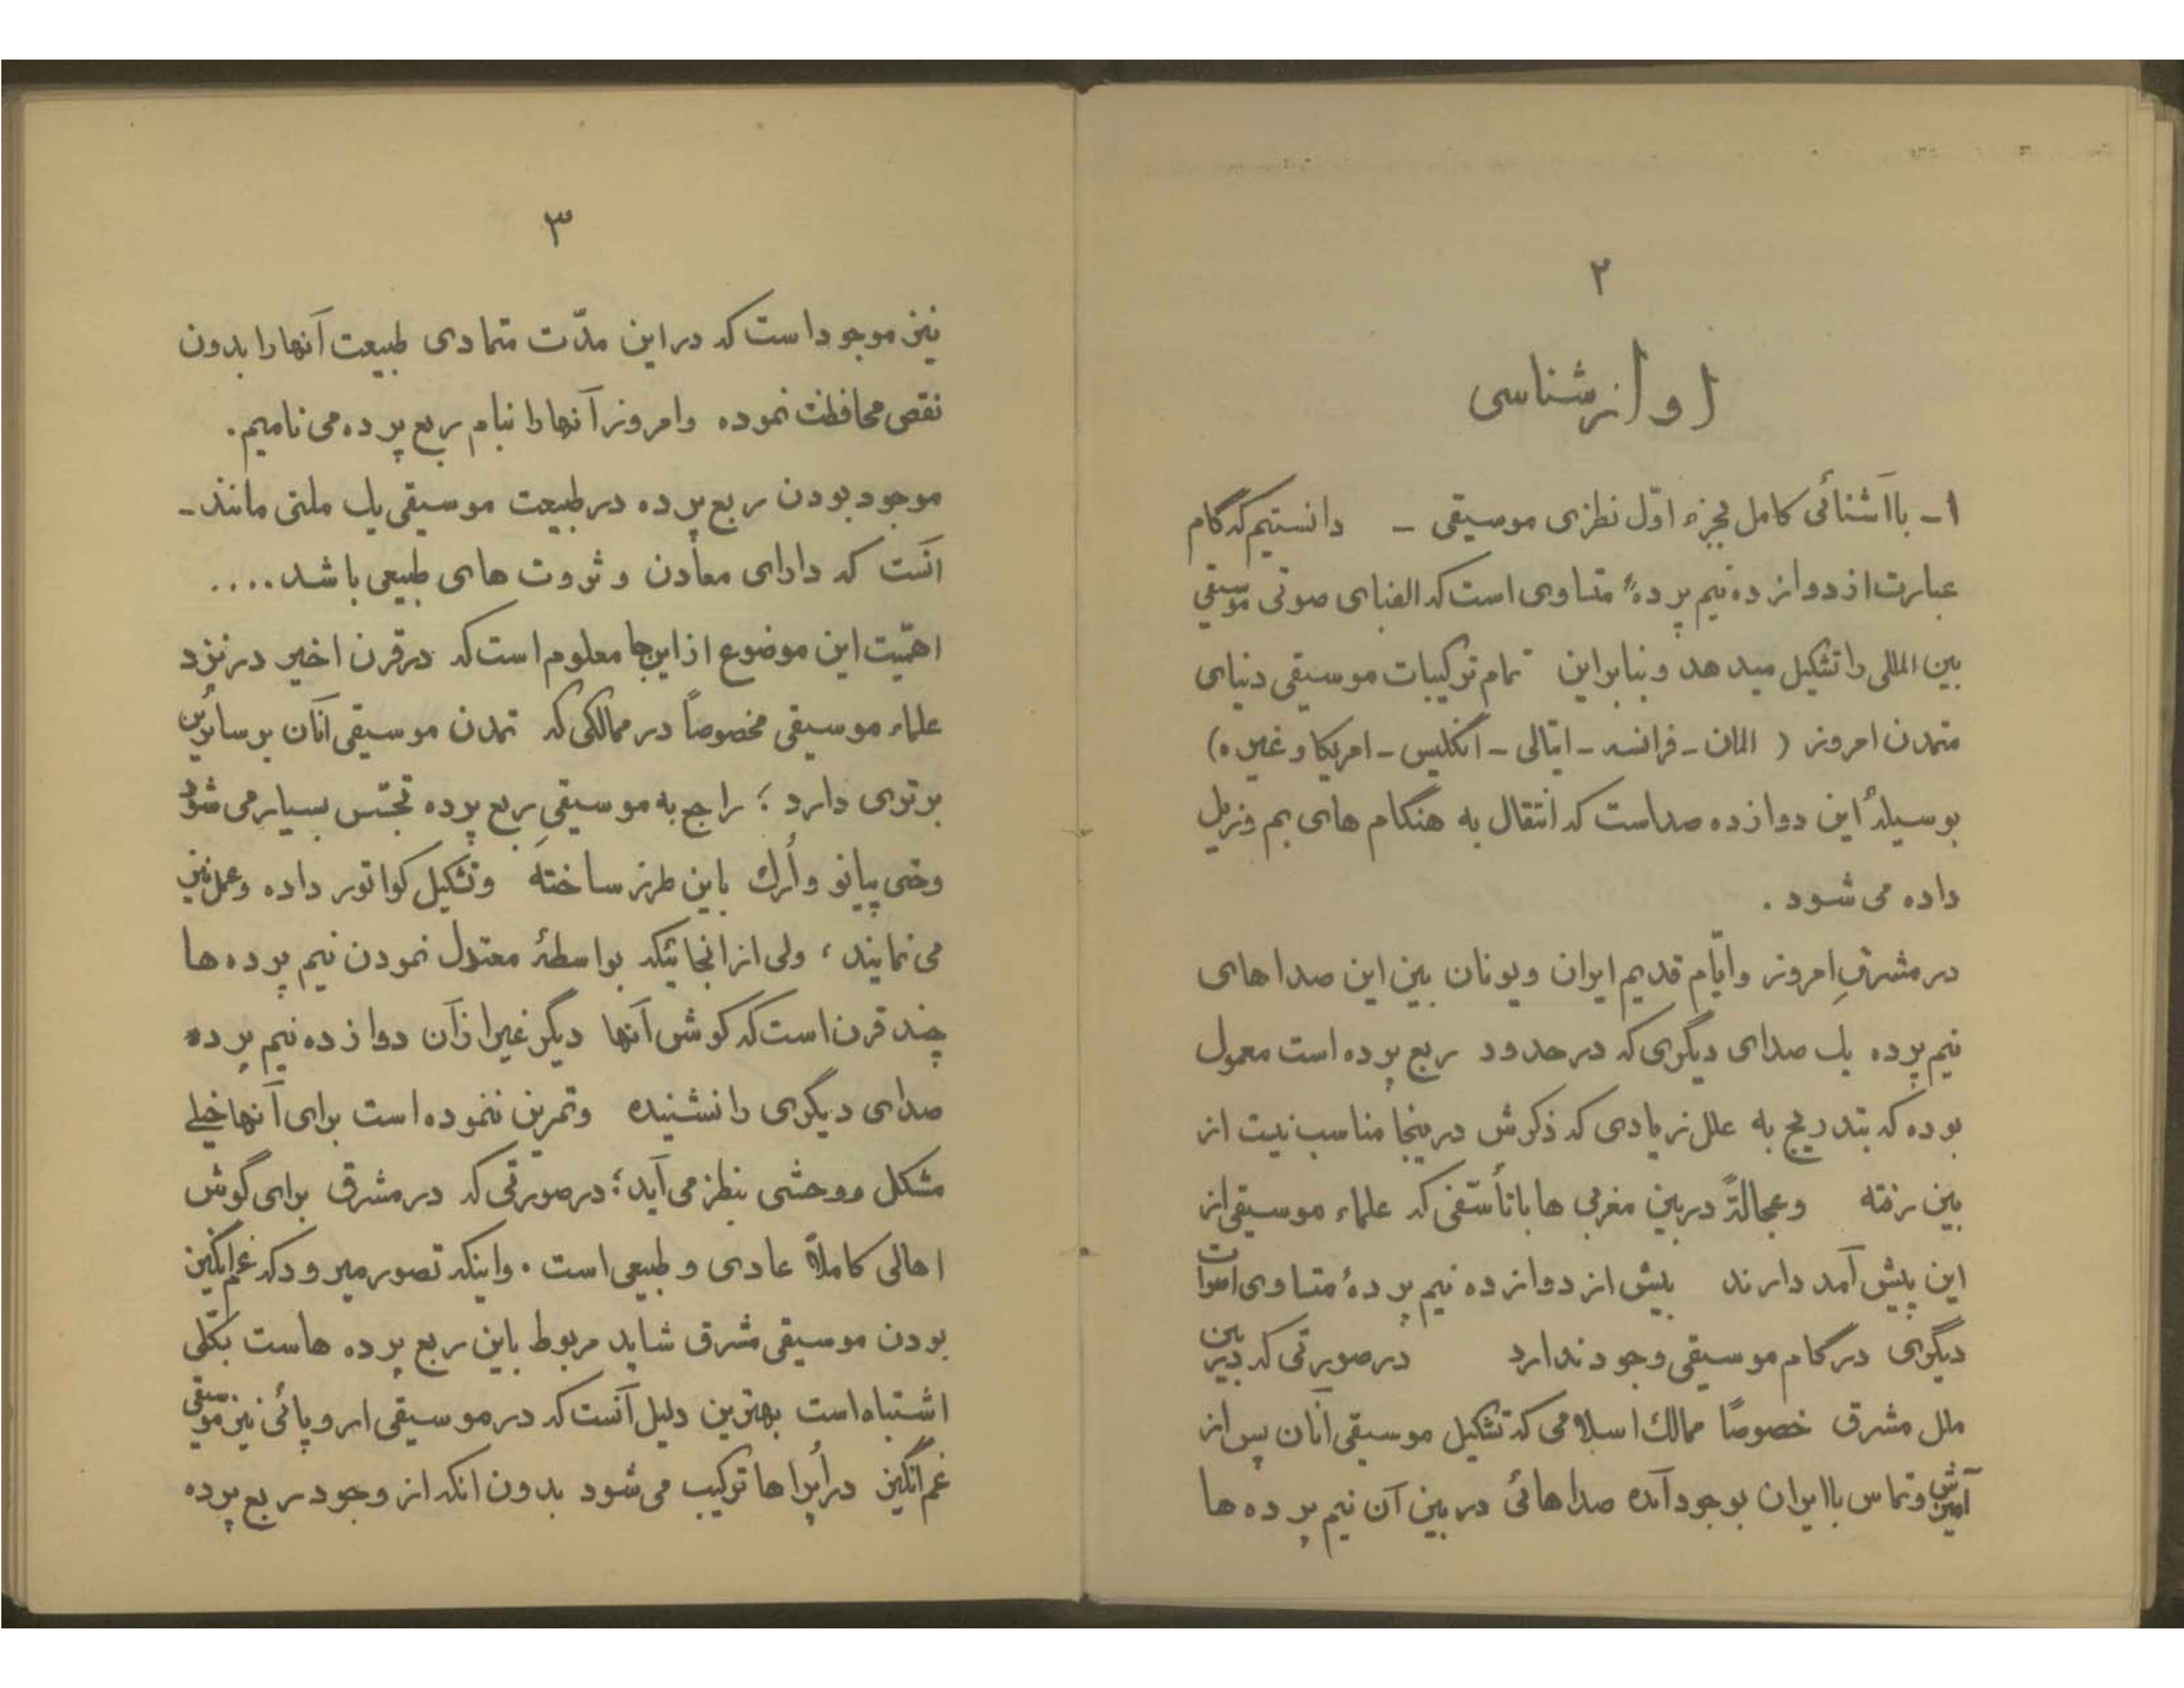 ۲
اوازشناسی
۱- باآشنائی کامل بجزء اوّل نظری موسیقی - دانستیم که گام
عبارت از دوازده نیم پردهٔ متساوی است که الفبای صوتی موسیقی
بین المللی را تشکیل میدهد و بنابراین تمام ترکیبات موسیقی دنیای
متمدن امروز ( المان - فرانسه - ایتالی - انگلیس - امریکا و غیره )
بوسیلهٔ این دوازده صداست که انتقال به هنگام های بم و زیل
داده می شود .
در مشرقِ امروز و ایّام قدیم ایران و یونان بین این صداهای
نیم پرده یک صدای دیگری که در حدود ربع پرده است معمول
بوده که بتدریج به علل زیادی که ذکرش در ینجا مناسب نیست از
بین رفته و عجالةً در بین مغربی ها با تأسّفی که علماء موسیقی از
این پیش آمد دارند بیش از دوازده نیم پردهٔ متساوی اصوات
دیگری در گام موسیقی وجود ندارد در صورتی که در بین
ملل مشرق خصوصاً ممالک اسلامی که تشکیل موسیقی آنان پس از
آمیزش و تماس با ایران بوجود آمده صداهائی در بین آن نیم پرده ها
۳
نیز موجود است که در این مدّت متمادی طبیعت آنها را بدون
نقص محافظت نموده و امروز آنها را بنام ربع پرده می نامیم.
موجود بودن ربع پرده در طبیعت موسیقی یک ملتی مانند -
آنست که دارای معادن و ثروت های طبیعی باشد....
اهمّیت این موضوع از این جا معلوم است که در قرن اخیر در نزد
علماء موسیقی مخصوصاً در ممالکی که تمدن موسیقی آنان بر سائرین
برتری دارد ؛ راجع به موسیقیِ ربع پرده تجسّس بسیار می شود
وحتی پیانو و اُرگ باین طرز ساخته و تشکیل کواتور داده و عمل نیز
می نمایند ، ولی از انجائیکه بواسطهٔ معتدل نمودن نیم پرده ها
چند قرن است که گوش آنها دیگر غیر از آن دوازده نیم پرده
صدای دیگری را نشنیده و تمرین ننموده است برای آنها خیلی
مشکل و وحشی بنظر می آید ؛ در صورتی که در مشرق برای گوش
اهالی کاملاً عادی و طبیعی است . و اینکه تصور میرود که غم انگیز
بودن موسیقی مشرق شاید مربوط باین ربع پرده هاست بکلّی
اشتباه است بهترین دلیل آنست که در موسیقی اروپائی نیز موسیقی
غم انگیز در اُپرا ها ترکیب می شود بدون انکه از وجود ربع پرده